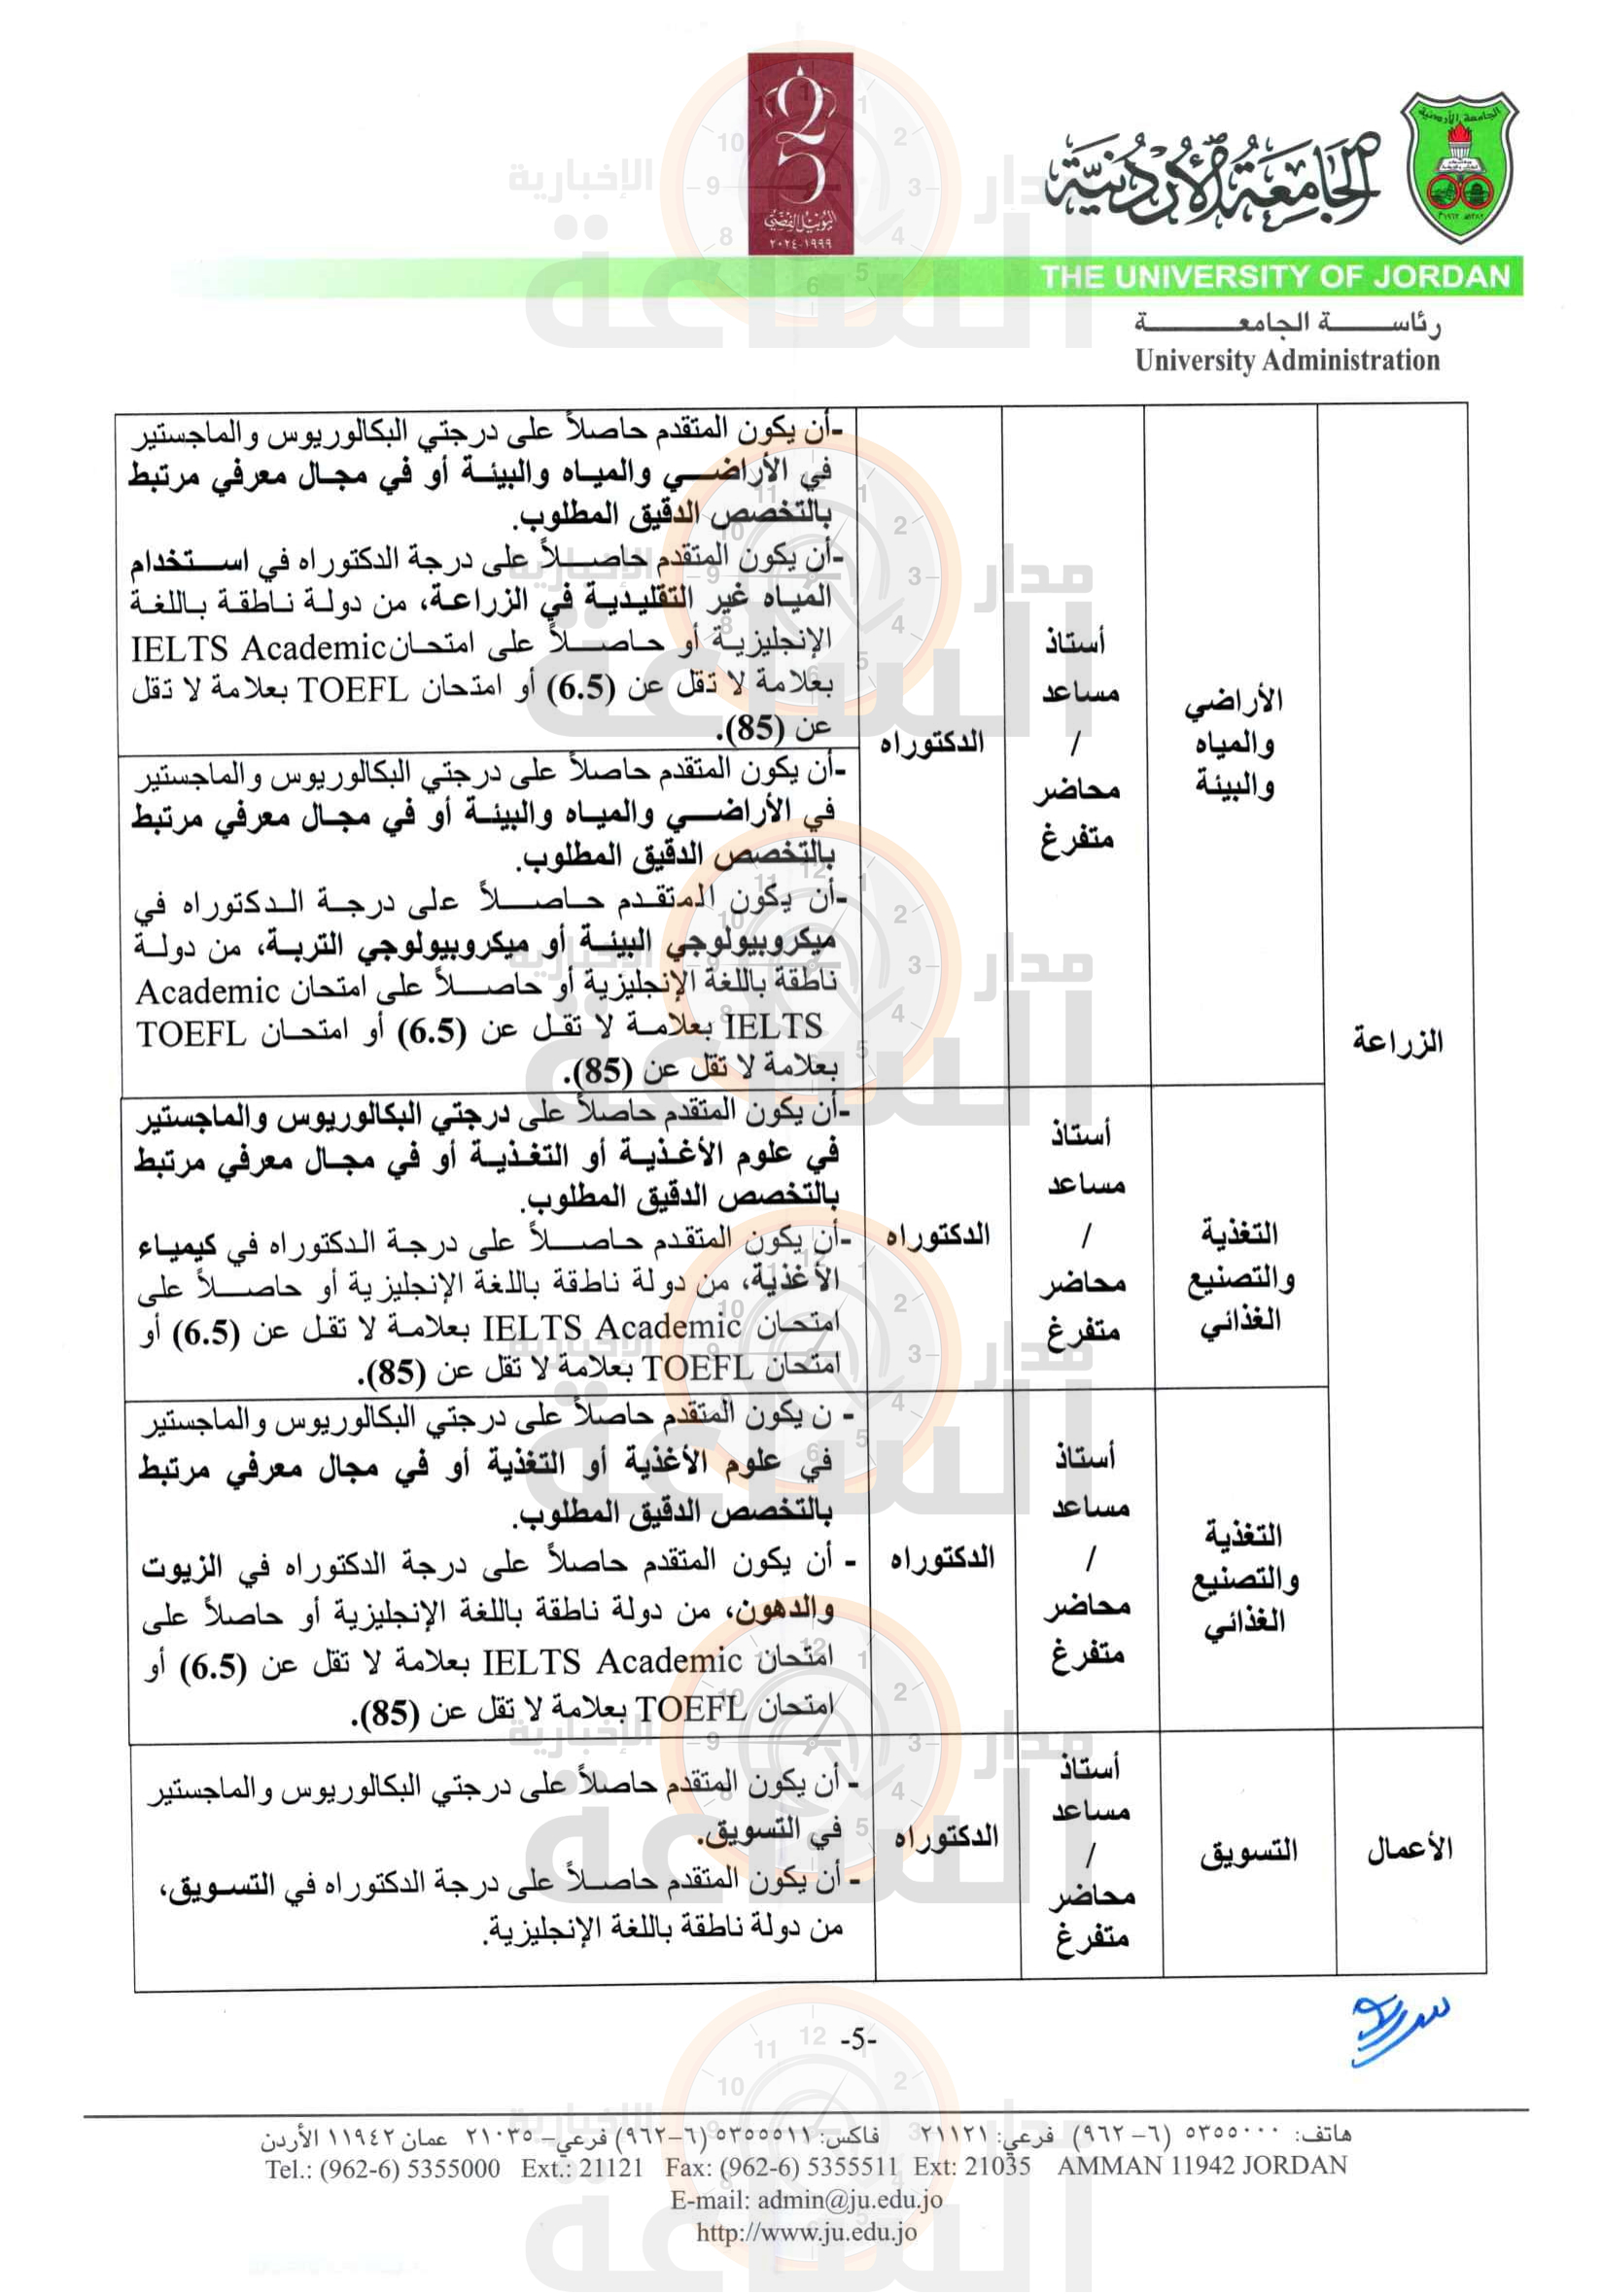 الجامعة الأردنية
اليوبيل الفضي
١٩٩٩-٢٠٢٤
THE UNIVERSITY OF JORDAN
رئاســــة الجامعــــــة
University Administration
الزراعة
الأراضي
والمياه
والبيئة
أستاذ
مساعد
/
محاضر
متفرغ
الدكتوراه
-أن يكون المتقدم حاصلاً على درجتي البكالوريوس والماجستير
في الأراضي والمياه والبيئة أو في مجال معرفي مرتبط
بالتخصص الدقيق المطلوب.
-أن يكون المتقدم حاصلاً على درجة الدكتوراه في استخدام
المياه غير التقليدية في الزراعة، من دولة ناطقة باللغة
الإنجليزية أو حاصلاً على امتحان IELTS Academic
بعلامة لا تقل عن (6.5) أو امتحان TOEFL بعلامة لا تقل
عن (85).
-أن يكون المتقدم حاصلاً على درجتي البكالوريوس والماجستير
في الأراضي والمياه والبيئة أو في مجال معرفي مرتبط
بالتخصص الدقيق المطلوب.
-أن يكون المتقدم حاصلاً على درجة الدكتوراه في
ميكروبيولوجي البيئة أو ميكروبيولوجي التربة، من دولة
ناطقة باللغة الإنجليزية أو حاصلاً على امتحان Academic
IELTS بعلامة لا تقل عن (6.5) أو امتحان TOEFL
بعلامة لا تقل عن (85).
التغذية
والتصنيع
الغذائي
أستاذ
مساعد
/
محاضر
متفرغ
الدكتوراه
-أن يكون المتقدم حاصلاً على درجتي البكالوريوس والماجستير
في علوم الأغذية أو التغذية أو في مجال معرفي مرتبط
بالتخصص الدقيق المطلوب.
-أن يكون المتقدم حاصلاً على درجة الدكتوراه في كيمياء
الأغذية، من دولة ناطقة باللغة الإنجليزية أو حاصلاً على
امتحان IELTS Academic بعلامة لا تقل عن (6.5) أو
امتحان TOEFL بعلامة لا تقل عن (85).
التغذية
والتصنيع
الغذائي
أستاذ
مساعد
/
محاضر
متفرغ
الدكتوراه
- ن يكون المتقدم حاصلاً على درجتي البكالوريوس والماجستير
في علوم الأغذية أو التغذية أو في مجال معرفي مرتبط
بالتخصص الدقيق المطلوب.
- أن يكون المتقدم حاصلاً على درجة الدكتوراه في الزيوت
والدهون، من دولة ناطقة باللغة الإنجليزية أو حاصلاً على
امتحان IELTS Academic بعلامة لا تقل عن (6.5) أو
امتحان TOEFL بعلامة لا تقل عن (85).
الأعمال
التسويق
أستاذ
مساعد
/
محاضر
متفرغ
الدكتوراه
- أن يكون المتقدم حاصلاً على درجتي البكالوريوس والماجستير
في التسويق.
- أن يكون المتقدم حاصلاً على درجة الدكتوراه في التسويق،
من دولة ناطقة باللغة الإنجليزية.
-5-
هاتف: ٥٣٥٥٠٠٠ (٦-٩٦٢) فرعي: ٢١١٢١ فاكس: ٥٣٥٥٥١١ (٦-٩٦٢) فرعي- ٢١٠٣٥ عمان ١١٩٤٢ الأردن
Tel.: (962-6) 5355000 Ext.: 21121 Fax: (962-6) 5355511 Ext: 21035 AMMAN 11942 JORDAN
E-mail: admin@ju.edu.jo
http://www.ju.edu.jo
مدار
الساعة
الإخبارية